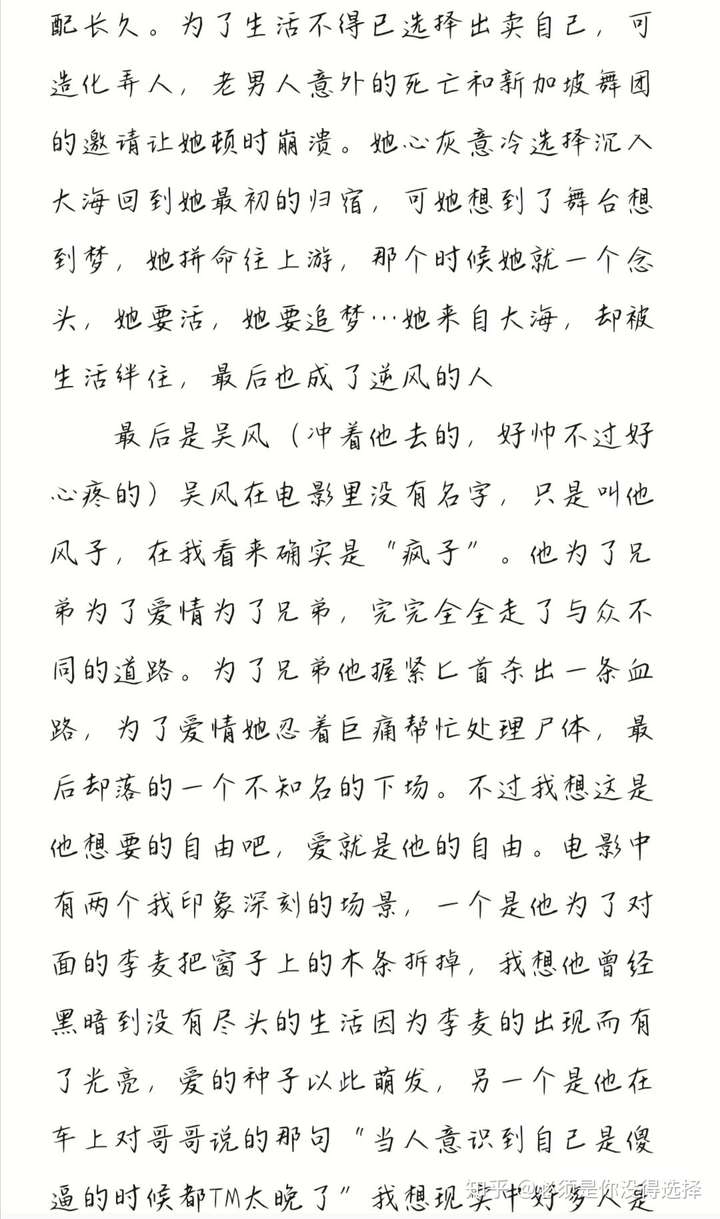 配长久。为了生活不得已选择出卖自己，可
造化弄人，老男人意外的死亡和新加坡舞团
的邀请让她顿时崩溃。她心灰意冷选择沉入
大海回到她最初的归宿，可她想到了舞台想
到梦，她拼命往上游，那个时候她就一个念
头，她要活，她要追梦…她来自大海，却被
生活绊住，最后也成了逆风的人
最后是吴风（冲着他去的，好帅不过好
心疼的）吴风在电影里没有名字，只是叫他
风子，在我看来确实是“疯子”。他为了兄
弟为了爱情为了兄弟，完完全全走了与众不
同的道路。为了兄弟他握紧匕首杀出一条血
路，为了爱情她忍着巨痛帮忙处理尸体，最
后却落的一个不知名的下场。不过我想这是
他想要的自由吧，爱就是他的自由。电影中
有两个我印象深刻的场景，一个是他为了对
面的李麦把窗子上的木条拆掉，我想他曾经
黑暗到没有尽头的生活因为李麦的出现而有
了光亮，爱的种子以此萌发，另一个是他在
车上对哥哥说的那句“当人意识到自己是傻
逼的时候都TM太晚了”我想现实中好多人是
知乎 @必须是你没得选择